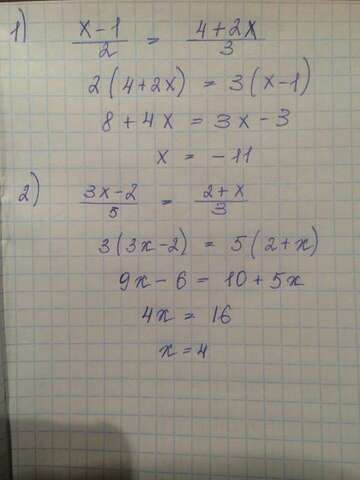 1) x-1/2 = 4+2x/3
2(4+2x) = 3(x-1)
8+4x = 3x-3
x = -11
2) 3x-2/5 = 2+x/3
3(3x-2) = 5(2+x)
9x-6 = 10+5x
4x = 16
x=4